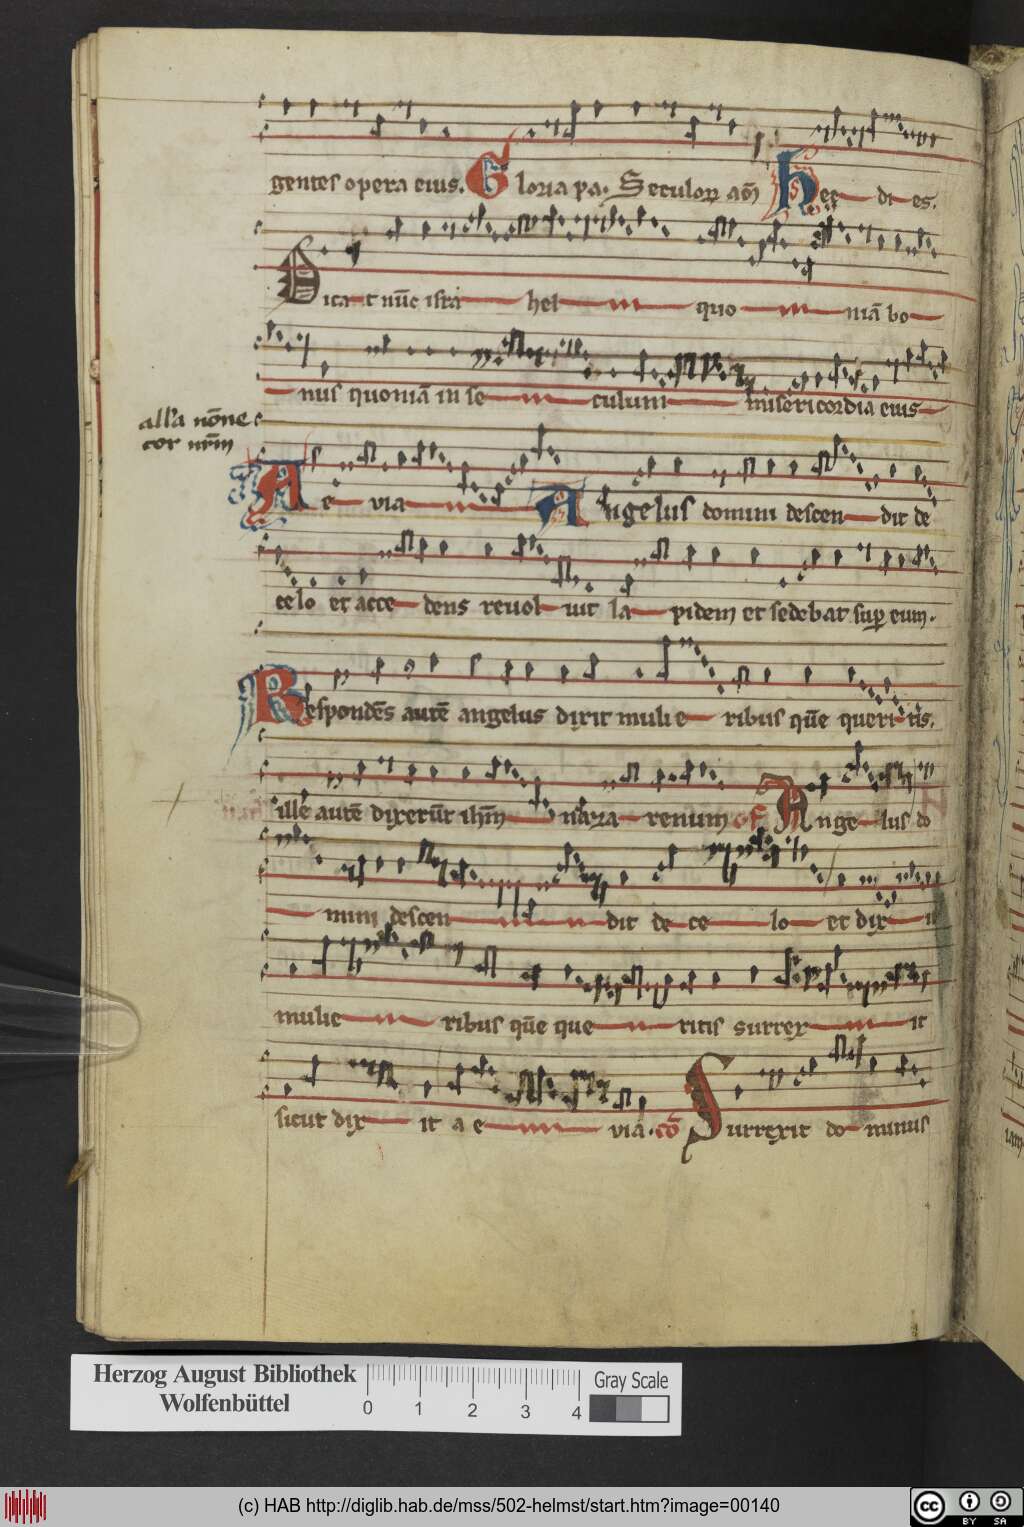 gentes opera eius. Gloria pa. Seculoꝝ am̄ hec di es.
Dicat nūc isra hel quo niā bo
nus quoniā in se culum misericordia eius
all'a nōne
cor nr̄m
A e via Angelus domini descen dit de
celo et acce dens revol vit la pidem et sedebat sup̱ eum.
Respondēs autē angelus dixit mulie ribus qūe queri tis.
ille autē dixerūt ihm̄ naza renum of Ange lus do
mini descen dit de ce lo et dix it
mulie ribus qūe que ritis surrex it
sicut dix it a e via. cō Surrexit do minus
Herzog August Bibliothek
Wolfenbüttel
0 1 2 3 4
Gray Scale
(c) HAB http://diglib.hab.de/mss/502-helmst/start.htm?image=00140
cc BY SA